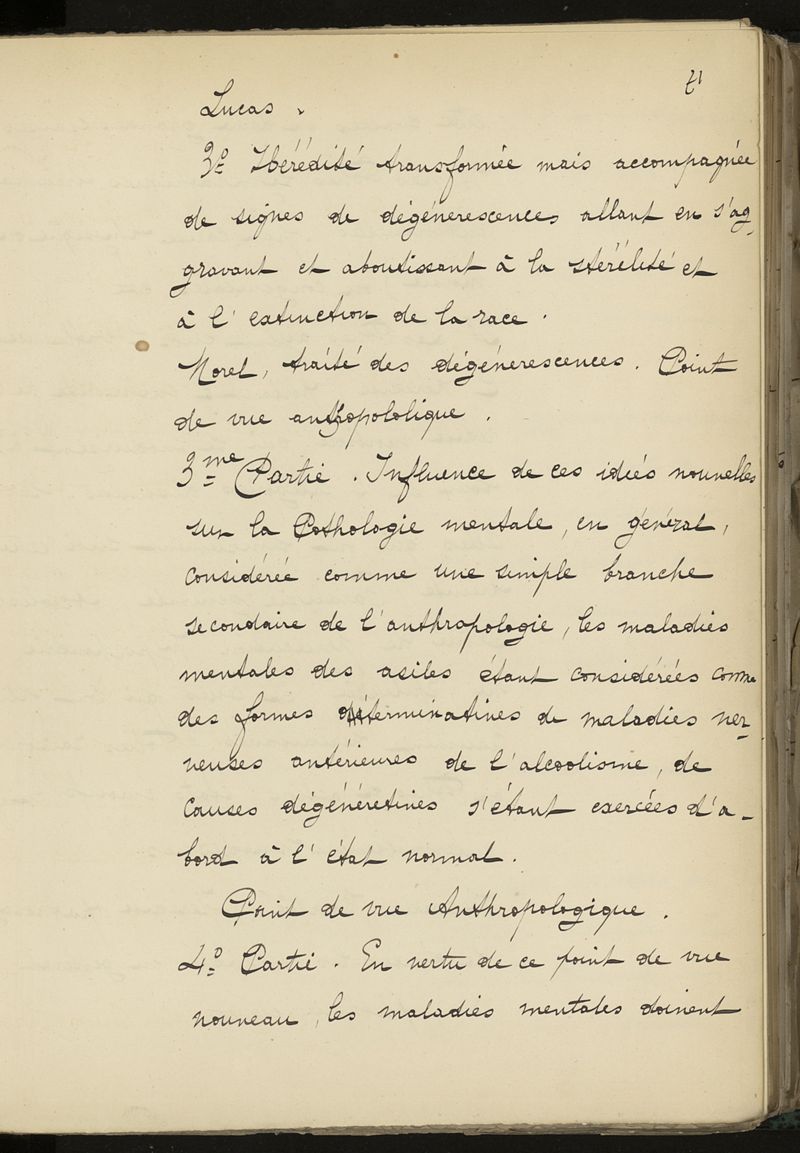 71
Lucas.
3º Hérédité transformée mais accompagnée
de signes de dégénerescences allant en s'ag-
gravant et aboutissant à la stérélité et
à l'extinction de la race.
Morel, traité des dégénerescences. Point
de vue anthropololique.
3me Partie. Influence de ces idiés nouvelles
sur la Pathologie mentale, en général,
considérée comme une simple branche
secondaire de l'anthropologie, les maladies
mentales des asiles étant considérées comme
des formes déterminatives de maladies ner-
veuses antérieures de l'alcoolisme, de
causes dégénéretives s'étant exercées d'a-
bord à l'état normal.
Point de vue Anthropologique.
4º Partie. En vertu de ce point de vue
nouveau, les maladies mentales doivent